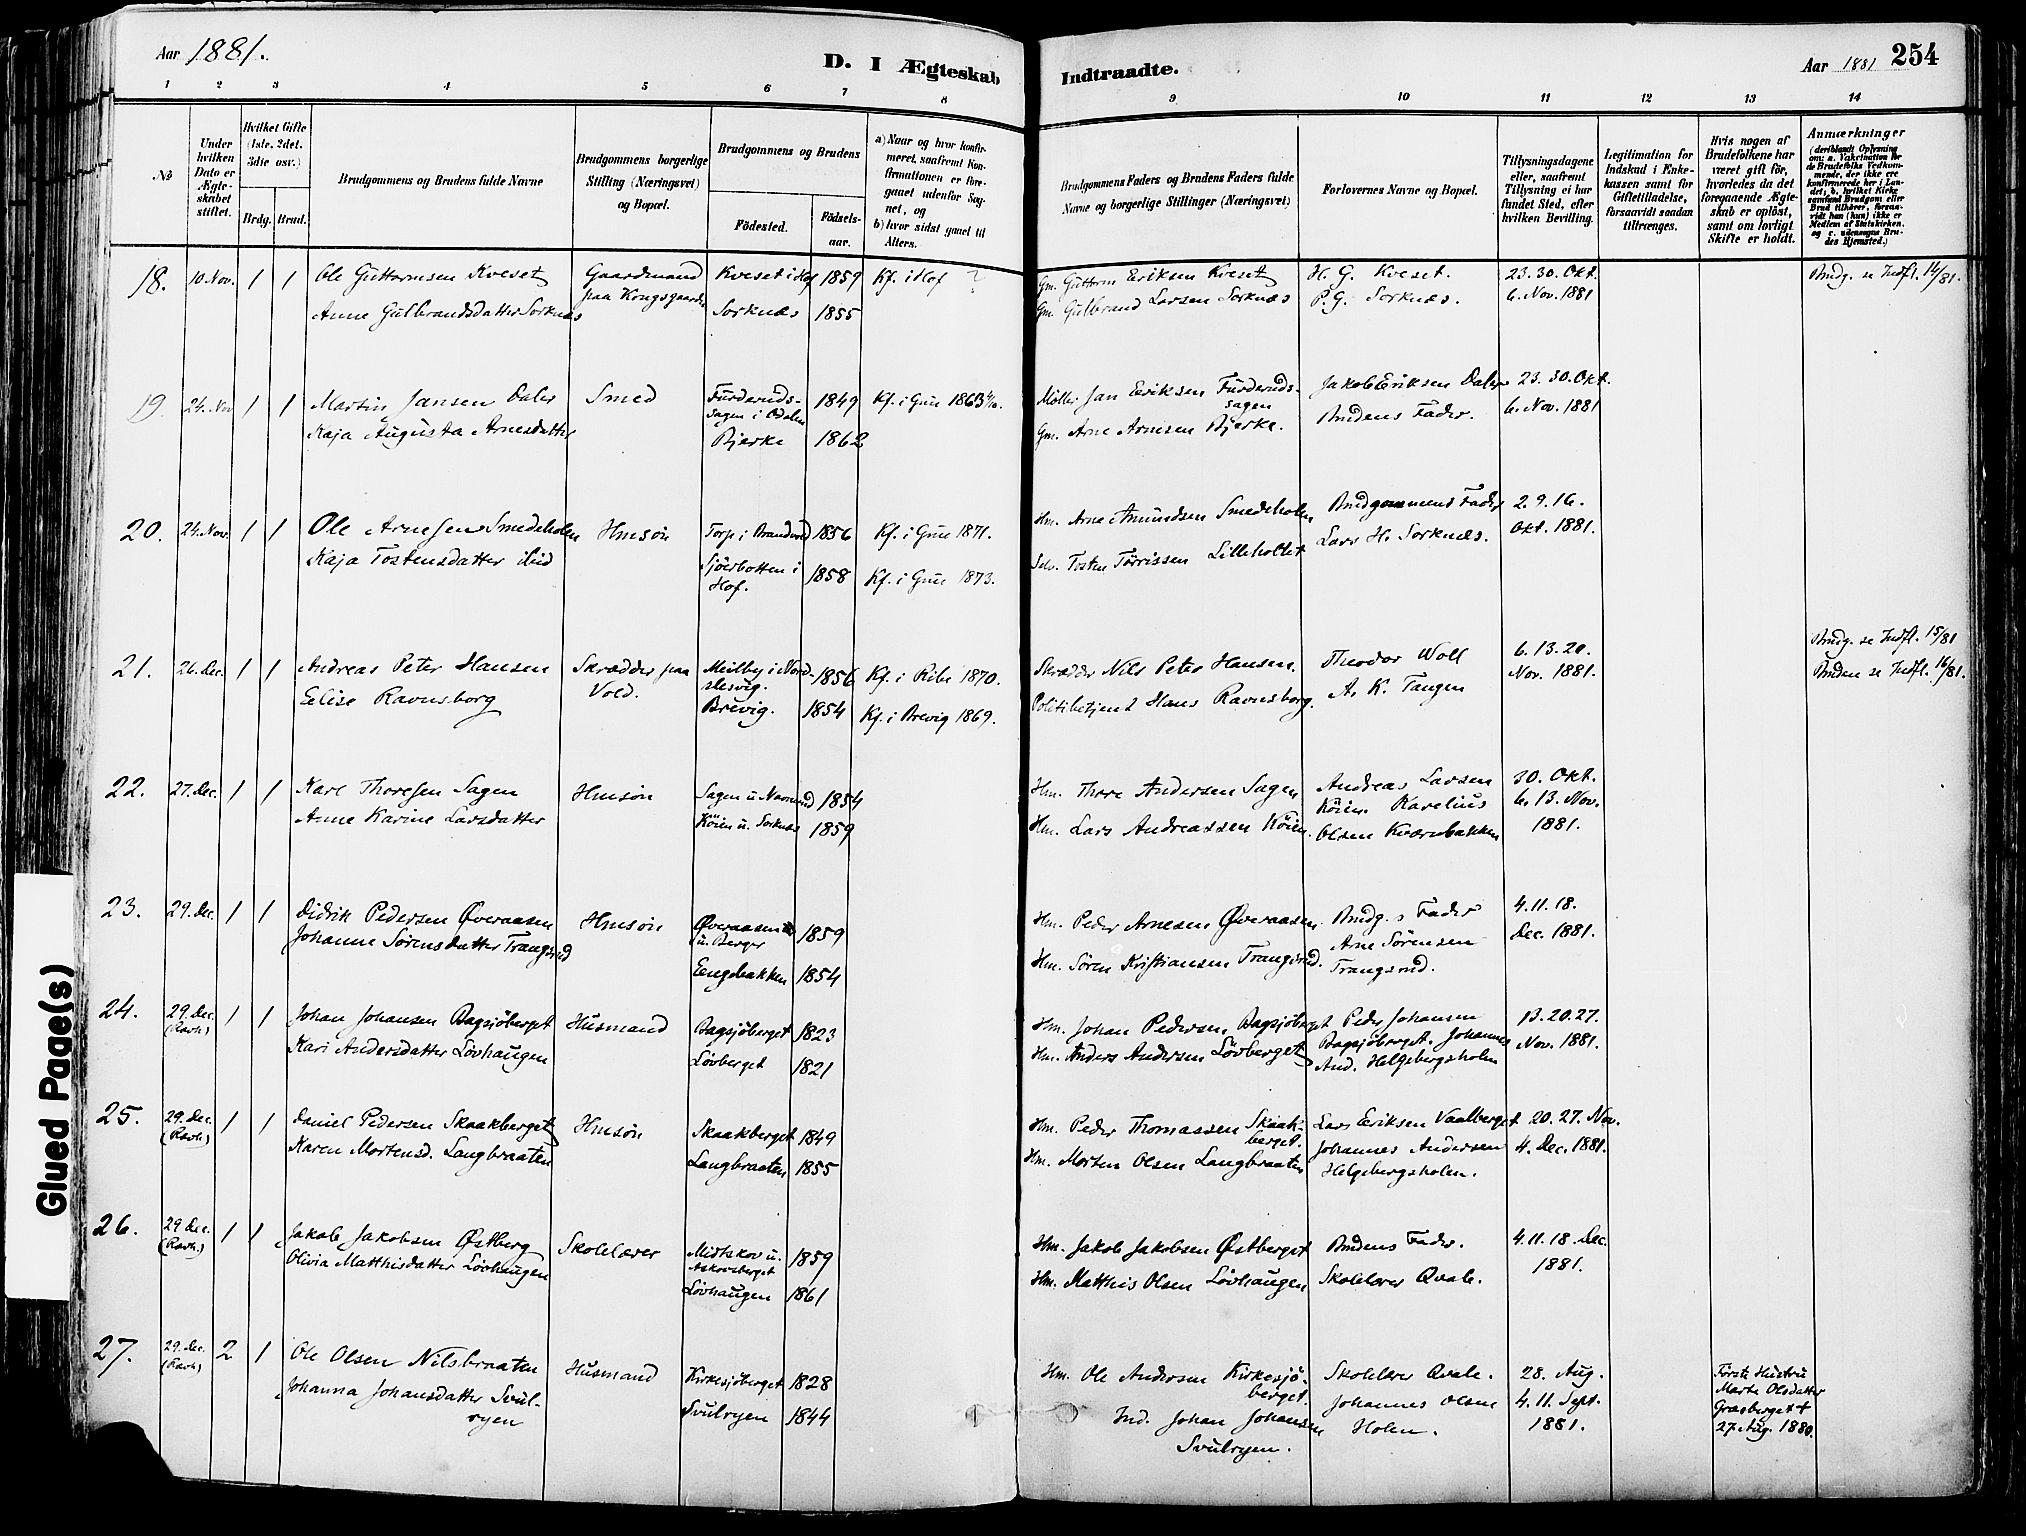 Aar 1881.
D. I Ægteskab
Indtraadte.
Aar 1881
254
1 2 3 4 5 6 7 8
9 10 11 12 13 14
No
Under hvilken Dato er Ægteskabet stiftet.
Hvilket Gifte (1ste, 2det, 3die osv.)
Brdg. Brud.
Brudgommens og Brudens fulde Navne
Brudgommens borgerlige Stilling (Næringsvei) og Bopæl.
Brudgommens og Brudens
Fødested.
Fødselsaar.
a) Naar og hvor konfirmeret, saafremt Konfirmationen er foregaaet udenfor Sognet, og
b) hvor sidst gaaet til Alters.
Brudgommens Faders og Brudens Faders fulde Navne og borgerlige Stillinger (Næringsvei)
Forlovernes Navne og Bopæl.
Tillysningsdagene eller, saafremt Tillysning ei har fundet Sted, efter hvilken Bevilling.
Legitimation for Indskud i Enkekassen samt for Giftetilladelse, forsaavidt saadan tiltrænges.
Hvis nogen af Brudefolkene har været gift før, hvorledes da det foregaaende Ægteskab er opløst, samt om lovligt Skifte er holdt.
Anmærkninger
(deriblandt Oplysning om: a. Vakcination for de Brudefolks Vedkommende, der ikke ere konfirmerede her i Landet; b. hvilket Kirkesamfund Brudgom eller Brud tilhører, forsaavidt han (hun) ikke er Medlem af Statskirken, og c. udensogns Brudes Hjemsted.)
18. 10 Nov. 1 1 Ole Guttormsen Kveset Gaardmand paa Kongsgaarden Kveset i Hof 1859 Kf. i Hof ? Gm. Guttorm Eriksen Kveset H. G. Kveset. 23. 30. Okt. 6. Nov. 1881 Brudg. se Indfl. 14/81.
Anne Gulbrandsdatter Sorknæs Sorknæs 1855 Gm. Gulbrand Larsen Sorknæs P. G. Sorknæs.
19. 24. Nov 1 1 Martin Jansen Daler Smed Furderuds-sagen i Odalen 1849 Kf. i Grue 1863 4/10. Møller Jan Eriksen Furderuds-sagen Jakob Eriksen Daler 23. 30. Okt. 6. Nov. 1881
Kaja Augusta Arnesdatter Bjerke 1862 Gm. Arne Arnesen Bjerke. Brudens Fader.
20. 24. Nov. 1 1 Ole Arnesen Smedeholen Hmsøn Torp i Brandvold 1856 Kf. i Grue 1871. Hm. Arne Amundsen Smedeholen Brudgommens Fader 2. 9. 16. Okt. 1881.
Kaja Tostensdatter ibid Sjøerbotten i Hof. 1858 Kf. i Grue 1873. Selv. Tosten Tørrissen Lilleholtet Lars H. Sorknæs.
21. 26. Dec. 1 1 Andreas Peter Hansen Skrædder paa Vold. Meilby i Nordslesvig. 1856 Kf. i Ribe 1870. Skrædder Nils Peter Hansen. Theodor Woll 6. 13. 20. Nov. 1881. Brudg. se Indfl. 15/81
Elise Ravnsborg Brevig. 1854 Kf. i Brevig 1869. Politibetjent Hans Ravnsborg. A. K. Tangen Bruden se Indfl. 16/81.
22. 27. Dec. 1 1 Karl Thoresen Sagen Hmsøn Sagen u. Navnerud 1854 Hm. Thore Andersen Sagen Andreas Larsen Köien. Karelius Olsen Kværnbakken 30. Okt. 6. 13. Nov. 1881.
Anne Karine Larsdatter Köien u. Sorknæs 1859 Hm. Lars Andreassen Köien.
23. 29. Dec. 1 1 Didrik Pedersen Øveraasen Hmsøn Øveraasen u. Berger 1859 Hm. Peder Arnesen Øveraasen Brudg.s Fader 4. 11. 18. Dec. 1881.
Johanne Sørensdatter Trangsrud Eengebakken 1854 Hm. Søren Kristiansen Trangsrud. Arne Sørensen Trangsrud.
24. 29. Dec. (Ravh.) 1 1 Johan Johansen Bagsjöberget Husmand Bagsjöberget 1823 Hm. Johan Pedersen Bagsjöberget Peder Johansen Bagsjöberget. Johannes And. Helgebergsholen 13. 20. 27. Nov. 1881.
Kari Andersdatter Lövhaugen Lövberget 1821 Hm. Anders Andersen Lövberget
25. 29. Dec. (Ravh.) 1 1 Daniel Pedersen Skaakberget Hmsøn Skaakberget 1849 Hm. Peder Thomassen Skaakberget. Lars Eriksen Vaalberget 20. 27. Nov. 4. Dec. 1881.
Karen Mortensd. Langbraaten Langbraaten 1855 Hm. Morten Olsen Langbraaten Johannes Andersen Helgebergsholen.
26. 29 Dec. (Ravh.) 1 1 Jakob Jakobsen Østberg Skolelærer Midtskov u. Askovberget 1859 Hm. Jakob Jakobsen Østberget Brudens Fader. 4. 11. 18. Dec. 1881.
Olivia Matthisdatter Lövhaugen Lövhaugen 1861 Hm. Matthis Olsen Lövhaugen Skolelærer Qvale.
27. 29. Dec. (Ravh) 2 1 Ole Olsen Nilsbraaten Husmand Kirkesjöberget 1828 Hm. Ole Andersen Kirkesjöberget. Skolelærer Qvale. 28. Aug. 4. 11. Sept. 1881. Første Hustru Marte Olsdatter Græsberget + 27. Aug. 1880.
Johanna Johansdatter Svulryen Svulryen 1844 Ind. Johan Johansen Svulryen. Johannes Olsen Holen.
Glued Page(s)